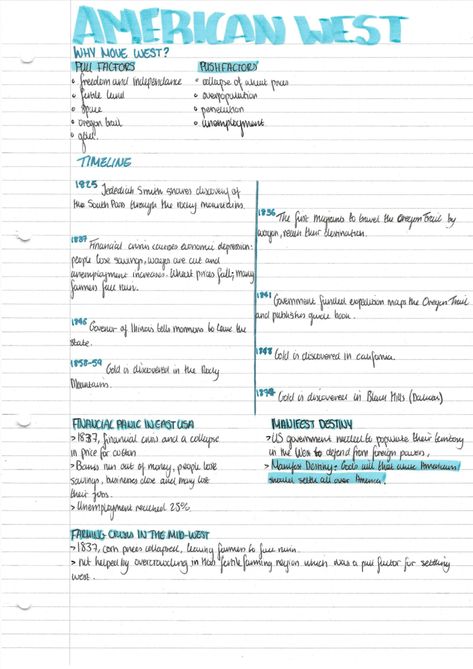 AMERICAN WEST
WHY MOVE WEST?
PULL FACTORS
freedom and independence
fertile land
space
oregon trail
PUSH FACTORS
collapse of wheat prices
overpopulation
persecution
unemployment
TIMELINE
1825 Jedediah Smith shares discovery of
the South Pass through the rocky mountains.
1836 The first migrants to travel the Oregon Trail by
wagon, reach their destination.
1837 Financial crisis causes economic depression:
people lose savings, wages are cut and
unemployment increases. Wheat prices fall; many
farmers face ruin.
1841 Government funded expedition maps the Oregon Trail
and publishes guide book.
1846 Governor of Illinois tells mormons to leave the
state.
1848 Gold is discovered in california.
1858-59 Gold is discovered in the Rocky
Mountains.
1874 Gold is discovered in Black Hills (Dakota)
FINANCIAL PANIC IN EAST USA
> 1837, financial crisis and a collapse
in price for cotton
> Banks run out of money, people lose
savings, businesses close and many lost
their jobs.
> Unemployment reached 25%
MANIFEST DESTINY
> US government needed to populate their territory
in the West to defend from foreign powers,
> Manifest Destiny = Gods will that white Americans
should settle all over America!
FARMING CRISIS IN THE MID-WEST
> 1837, corn prices collapsed, leaving farmers to face ruin.
> not helped by overcrowding in that fertile farming region which was a pull factor for settling
west.